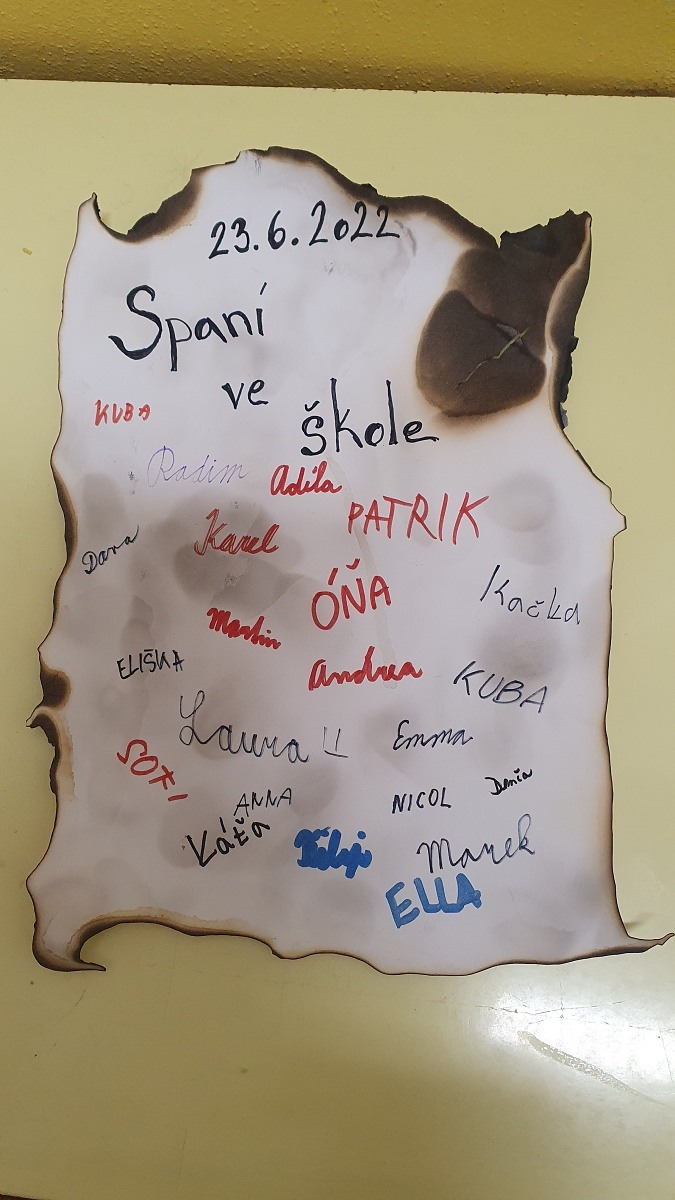 23.6.2022
Spaní
ve
škole
KUBA
Radim
Adéla
PATRIK
Karel
Dana
ÓŇA
Kačka
Martin
ELIŠKA
Andrea
KUBA
Laura
Emma
SOFI
ANNA
NICOL
Káťa
Marek
ELLA